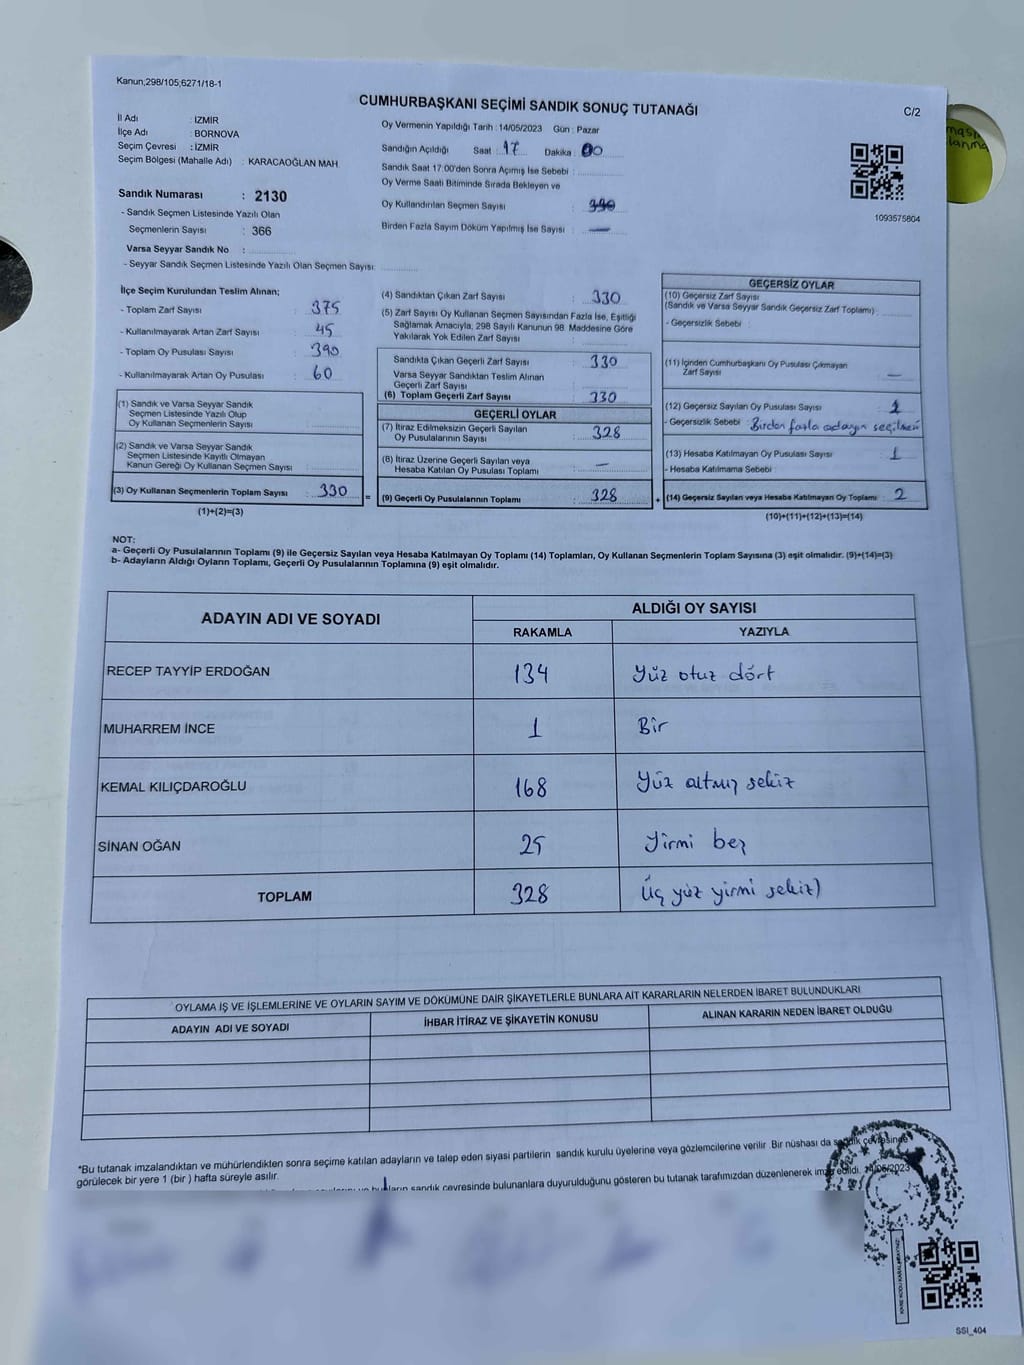 Kanun;298/105;6271/18-1
CUMHURBAŞKANI SEÇİMİ SANDIK SONUÇ TUTANAĞI
C/2
İl Adı : İZMİR
İlçe Adı : BORNOVA
Seçim Çevresi : İZMİR
Seçim Bölgesi (Mahalle Adı) : KARACAOĞLAN MAH
Sandık Numarası : 2130
- Sandık Seçmen Listesinde Yazılı Olan
Seçmenlerin Sayısı : 366
Varsa Seyyar Sandık No :
- Seyyar Sandık Seçmen Listesinde Yazılı Olan Seçmen Sayısı:
Oy Vermenin Yapıldığı Tarih : 14/05/2023 Gün : Pazar
Sandığın Açıldığı Saat : 17 Dakika : 00
Sandık Saat 17:00'den Sonra Açımış İse Sebebi :
Oy Verme Saati Bitiminde Sırada Bekleyen ve
Oy Kullandırılan Seçmen Sayısı :
Birden Fazla Sayım Döküm Yapılmış İse Sayısı : —
1093575604
İlçe Seçim Kurulundan Teslim Alınan;
- Toplam Zarf Sayısı : 375
- Kullanılmayarak Artan Zarf Sayısı : 45
- Toplam Oy Pusulası Sayısı : 390
- Kullanılmayarak Artan Oy Pusulası : 60
(1) Sandık ve Varsa Seyyar Sandık
Seçmen Listesinde Yazılı Olup
Oy Kullanan Seçmenlerin Sayısı :
(2) Sandık ve Varsa Seyyar Sandık
Seçmen Listesinde Kayıtlı Olmayan
Kanun Gereği Oy Kullanan Seçmen Sayısı :
(3) Oy Kullanan Seçmenlerin Toplam Sayısı : 330
(1)+(2)=(3)
=
(4) Sandıktan Çıkan Zarf Sayısı : 330
(5) Zarf Sayısı Oy Kullanan Seçmen Sayısından Fazla İse, Eşitliği
Sağlamak Amacıyla; 298 Sayılı Kanunun 98. Maddesine Göre
Yakılarak Yok Edilen Zarf Sayısı :
Sandıkta Çıkan Geçerli Zarf Sayısı : 330
Varsa Seyyar Sandıktan Teslim Alınan
Geçerli Zarf Sayısı :
(6) Toplam Geçerli Zarf Sayısı : 330
GEÇERLİ OYLAR
(7) İtiraz Edilmeksizin Geçerli Sayılan
Oy Pusulalarının Sayısı : 328
(8) İtiraz Üzerine Geçerli Sayılan veya
Hesaba Katılan Oy Pusulası Toplamı : —
(9) Geçerli Oy Pusulalarının Toplamı : 328
+
GEÇERSİZ OYLAR
(10) Geçersiz Zarf Sayısı
(Sandık ve Varsa Seyyar Sandık Geçersiz Zarf Toplamı) :
- Geçersizlik Sebebi :
(11) İçinden Cumhurbaşkanı Oy Pusulası Çıkmayan
Zarf Sayısı : —
(12) Geçersiz Sayılan Oy Pusulası Sayısı : 1
- Geçersizlik Sebebi : Birden fazla adayın seçilmesi
(13) Hesaba Katılmayan Oy Pusulası Sayısı : 1
- Hesaba Katılmama Sebebi :
(14) Geçersiz Sayılan veya Hesaba Katılmayan Oy Toplamı : 2
(10)+(11)+(12)+(13)=(14)
NOT:
a- Geçerli Oy Pusulalarının Toplamı (9) ile Geçersiz Sayılan veya Hesaba Katılmayan Oy Toplamı (14) Toplamları, Oy Kullanan Seçmenlerin Toplam Sayısına (3) eşit olmalıdır. (9)+(14)=(3)
b- Adayların Aldığı Oyların Toplamı, Geçerli Oy Pusulalarının Toplamına (9) eşit olmalıdır.
ADAYIN ADI VE SOYADI ALDIĞI OY SAYISI
RAKAMLA YAZIYLA
RECEP TAYYİP ERDOĞAN 134 Yüz otuz dört
MUHARREM İNCE 1 Bir
KEMAL KILIÇDAROĞLU 168 Yüz altmış sekiz
SİNAN OĞAN 25 Yirmi beş
TOPLAM 328 Üç yüz yirmi sekiz)
OYLAMA İŞ VE İŞLEMLERİNE VE OYLARIN SAYIM VE DÖKÜMÜNE DAİR ŞİKAYETLERLE BUNLARA AİT KARARLARIN NELERDEN İBARET BULUNDUKLARI
ADAYIN ADI VE SOYADI İHBAR İTİRAZ VE ŞİKAYETİN KONUSU ALINAN KARARIN NEDEN İBARET OLDUĞU
*Bu tutanak imzalandıktan ve mühürlendikten sonra seçime katılan adayların ve talep eden siyasi partilerin sandık kurulu üyelerine veya gözlemcilerine verilir. Bir nüshası da sandık çevresinde
görülecek bir yere 1 (bir ) hafta süreyle asılır.
sandık çevresinde bulunanlara duyurulduğunu gösteren bu tutanak tarafımızdan düzenlenerek imza edildi. 14/05/2023
SSI_404